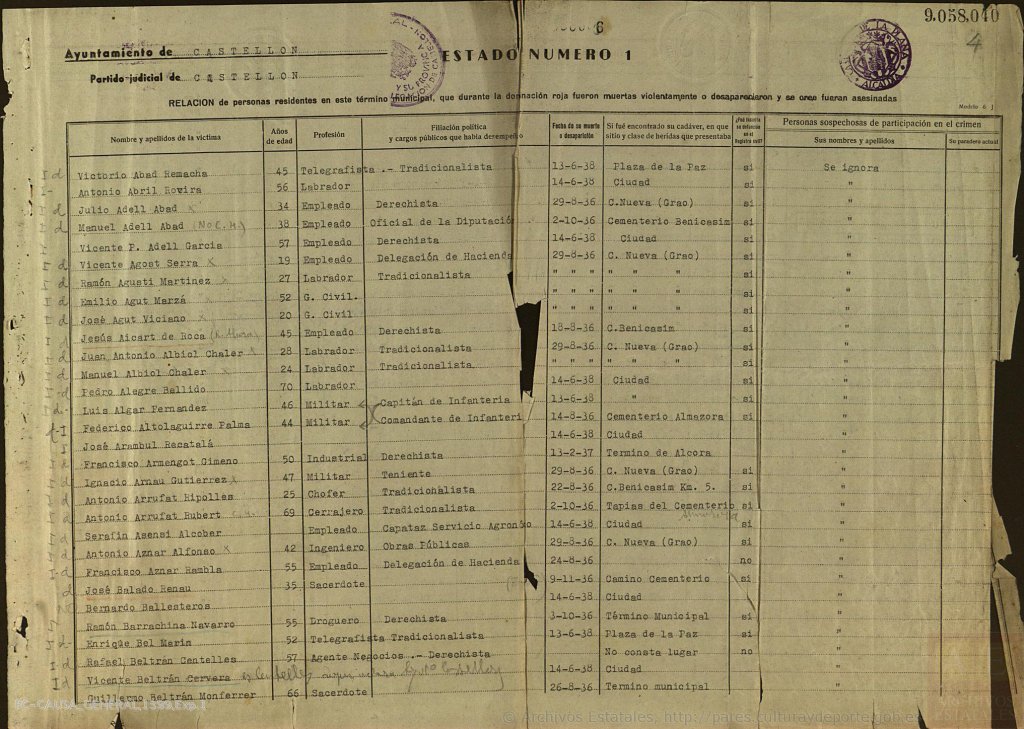 6
9.058.040
4
Ayuntamiento de CASTELLON
ESTADO NUMERO 1
Partido judicial de CASTELLON
RELACION de personas residentes en este término municipal, que durante la dominación roja fueron muertas violentamente o desaparecieron y se cree fueran asesinadas
Modelo
Nombre y apellidos de la víctima Años de edad Profesión Filiación política y cargos públicos que había desempeño Fecha de su muerte o desaparición Si fué encontrado su cadáver, en que sitio y clase de heridas que presentaba ¿Fué inscrita su defunción en el Registro civil? Personas sospechosas de participación en el crimen
Sus nombres y apellidos Su paradero actual
Victorio Abad Remacha 45 Telegrafista .- Tradicionalista 13-6-38 Plaza de la Paz si Se ignora
Antonio Abril Rovira 56 Labrador 14-6-38 Ciudad si "
Julio Adell Abad 34 Empleado Derechista 29-8-36 C.Nueva (Grao) si "
Manuel Adell Abad 38 Empleado Oficial de la Diputación 2-10-36 Cementerio Benicasim si "
Vicente P. Adell Garcia 57 Empleado Derechista 14-6-38 Ciudad si "
Vicente Agost Serra 19 Empleado Delegación de Hacienda 29-8-36 C. Nueva (Grao) si "
Ramón Agusti Martinez 27 Labrador Tradicionalista " " " " " si "
Emilio Agut Marzá 52 G. Civil. " " " " " si "
José Agut Viciano 20 G. Civil " " " " " si "
Jesús Aicart de Roca 45 Empleado Derechista 18-8-36 C.Benicasim si "
Juan Antonio Albiol Chaler 28 Labrador Tradicionalista 29-8-36 C. Nueva (Grao) si "
Manuel Albiol Chaler 24 Labrador Tradicionalista " " " " " si "
Pedro Alegre Bellido 70 Labrador 14-6-38 Ciudad si "
Luis Algar Fernandez 46 Militar Capitán de Infanteria 13-6-38 " si "
Federico Altolaguirre Palma 44 Militar Comandante de Infanteri 14-8-36 Cementerio Almazora si "
José Arambul Recatalá 14-6-38 Ciudad "
Francisco Armengot Gimeno 50 Industrial Derechista 13-2-37 Termino de Alcora "
Ignacio Arnau Gutierrez 47 Militar Teniente 29-8-36 C. Nueva (Grao) si "
Antonio Arrufat Ripolles 25 Chofer Tradicionalista 22-8-36 C.Benicasim Km. 5. si "
Antonio Arrufat Rubert 69 Cerrajero Tradicionalista 2-10-36 Tapias del Cementerio si "
Serafin Asensi Alcober Empleado Capataz Servicio Agronó 14-6-38 Ciudad si "
Antonio Aznar Alfonso 42 Ingeniero Obras Públicas 29-8-36 C. Nueva (Grao) si "
Francisco Aznar Rambla 55 Empleado Delegación de Hacienda 24-8-36 no "
José Balado Renau 35 Sacerdote 9-11-36 Camino Cementerio si "
Bernardo Ballesteros 14-6-38 Ciudad "
Ramón Barrachina Navarro 55 Droguero Derechista 3-10-36 Término Municipal si "
Enrique Bel Marin 52 Telegrafista Tradicionalista 13-6-36 Plaza de la Paz si "
Rafael Beltrán Centelles 57 Agente Negocios .- Derechista No consta lugar no "
Vicente Beltrán Cervera 14-6-38 Ciudad "
Guillermo Beltrán Monferrer 66 Sacerdote 26-8-36 Termino municipal "
FC-CAUSA_GENERAL,1399,Exp.1
© Archivos Estatales, http://pares.culturaydeporte.gob.es